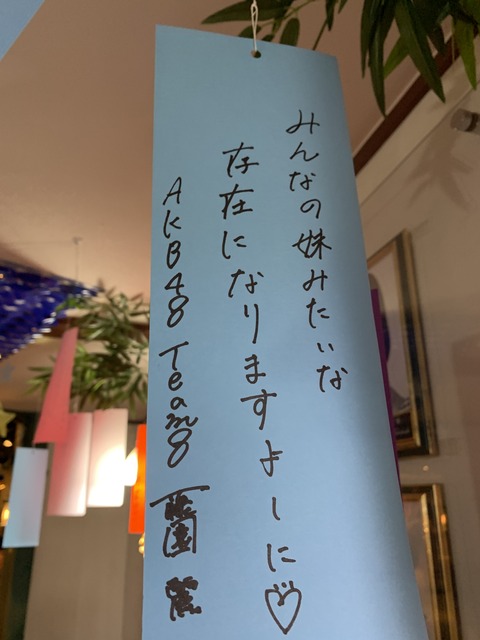 みんなの妹みたいな
存在になりますよーに♡
AKB48 Team8 藤園 麗